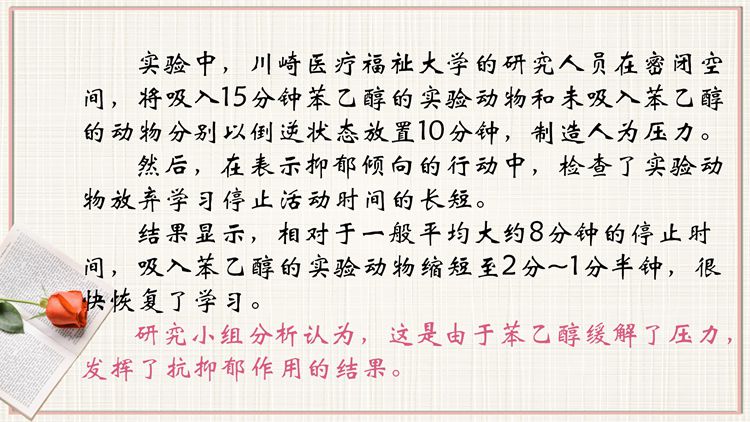 实验中，川崎医疗福祉大学的研究人员在密闭空
间，将吸入15分钟苯乙醇的实验动物和未吸入苯乙醇
的动物分别以倒逆状态放置10分钟，制造人为压力。
然后，在表示抑郁倾向的行动中，检查了实验动
物放弃学习停止活动时间的长短。
结果显示，相对于一般平均大约8分钟的停止时
间，吸入苯乙醇的实验动物缩短至2分~1分半钟，很
快恢复了学习。
研究小组分析认为，这是由于苯乙醇缓解了压力，
发挥了抗抑郁作用的结果。